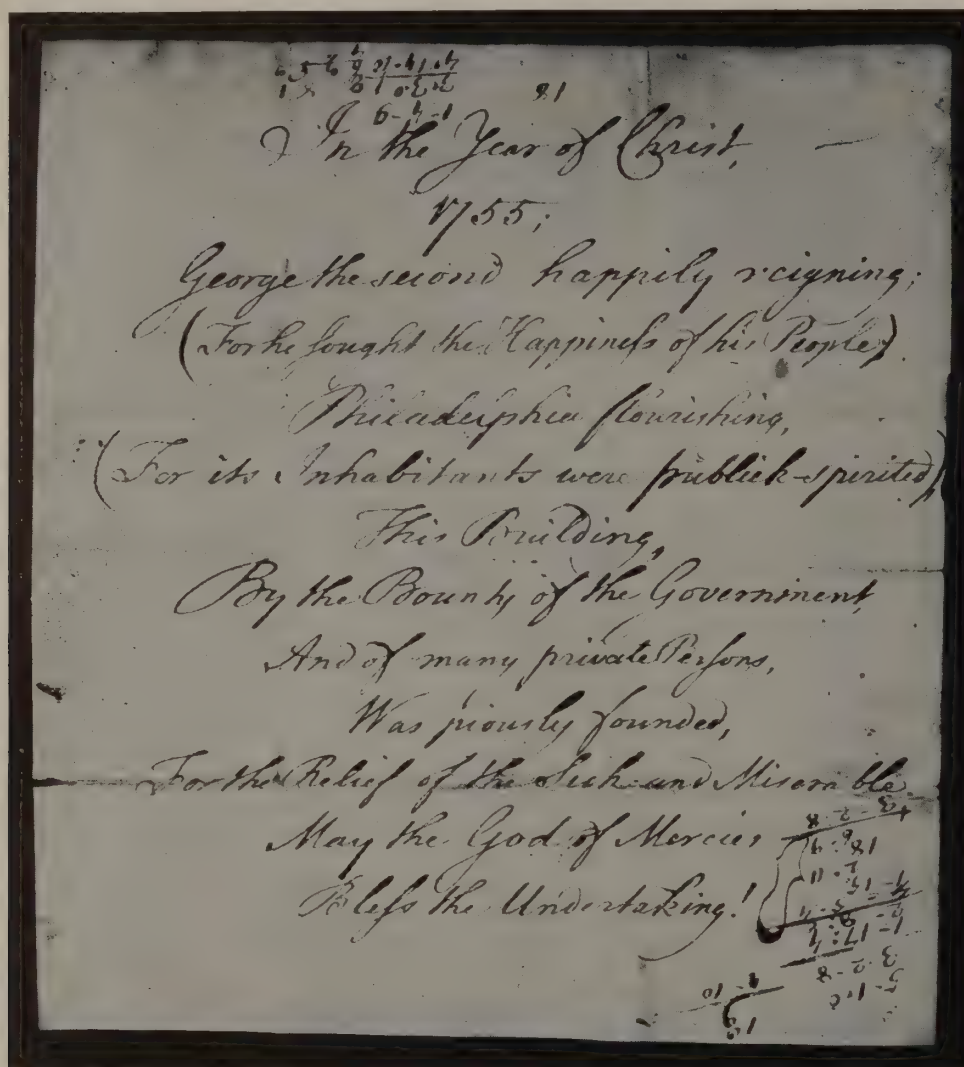 In the Year of Christ,
1755;
George the second happily reigning;
(For he sought the Happiness of his People)
Philadelphia flourishing,
(For its Inhabitants were publick-spirited)
This Building,
By the Bounty of the Government,
And of many private Persons,
Was piously founded,
For the Relief of the Sick and Miserable.
May the God of Mercies
Bless the Undertaking!